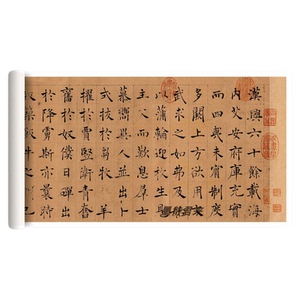 漢興六十餘載海
內乂安府庫充實
而四夷未賓制度
多闕上方欲用文
武求之如弗及
以蒲輪迎枚生見
主父而歎息羣士
慕嚮異人並出卜
式拔於芻牧羊
擢於賈豎衛青
奮於奴僕日磾出
於降虜斯亦曩時
版築飯牛之朋已